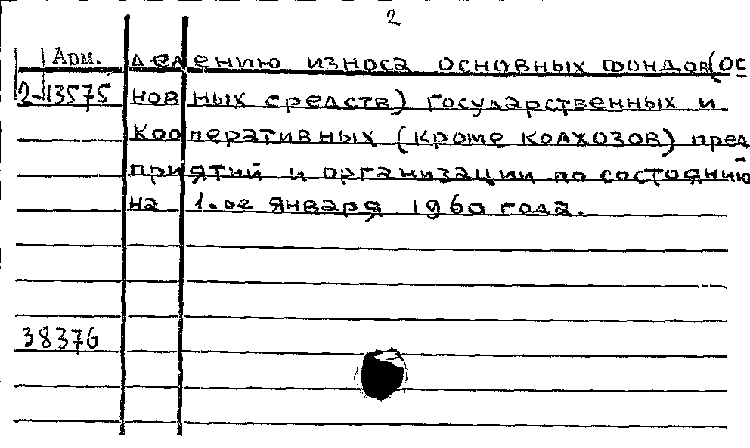 2
Арм. делению износа основных фондов (ос
2-13575 новных средств) государственных и
кооперативных (кроме колхозов) пред
приятий и организации по состоянию
на 1.ое января 1960 года.
38376